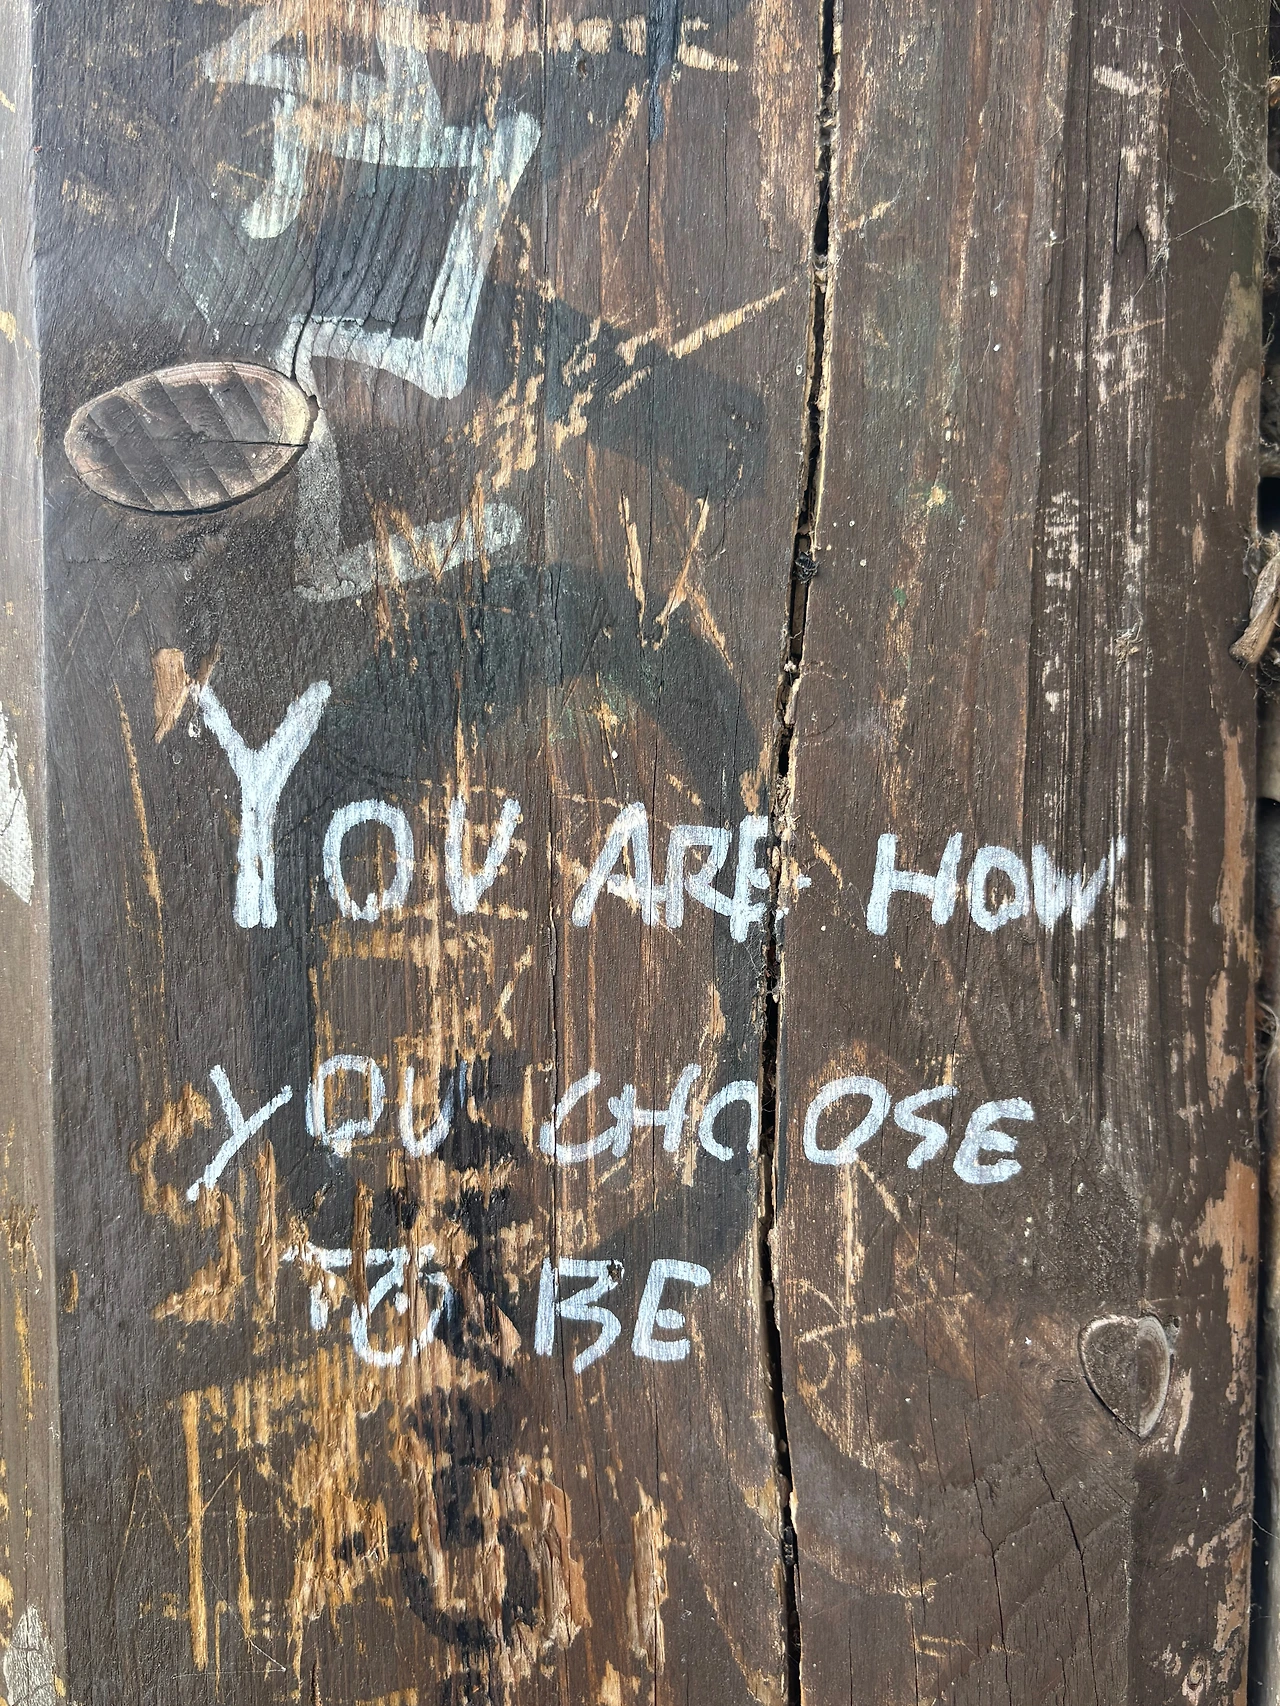 YOU ARE HOW
YOU CHOOSE
TO BE